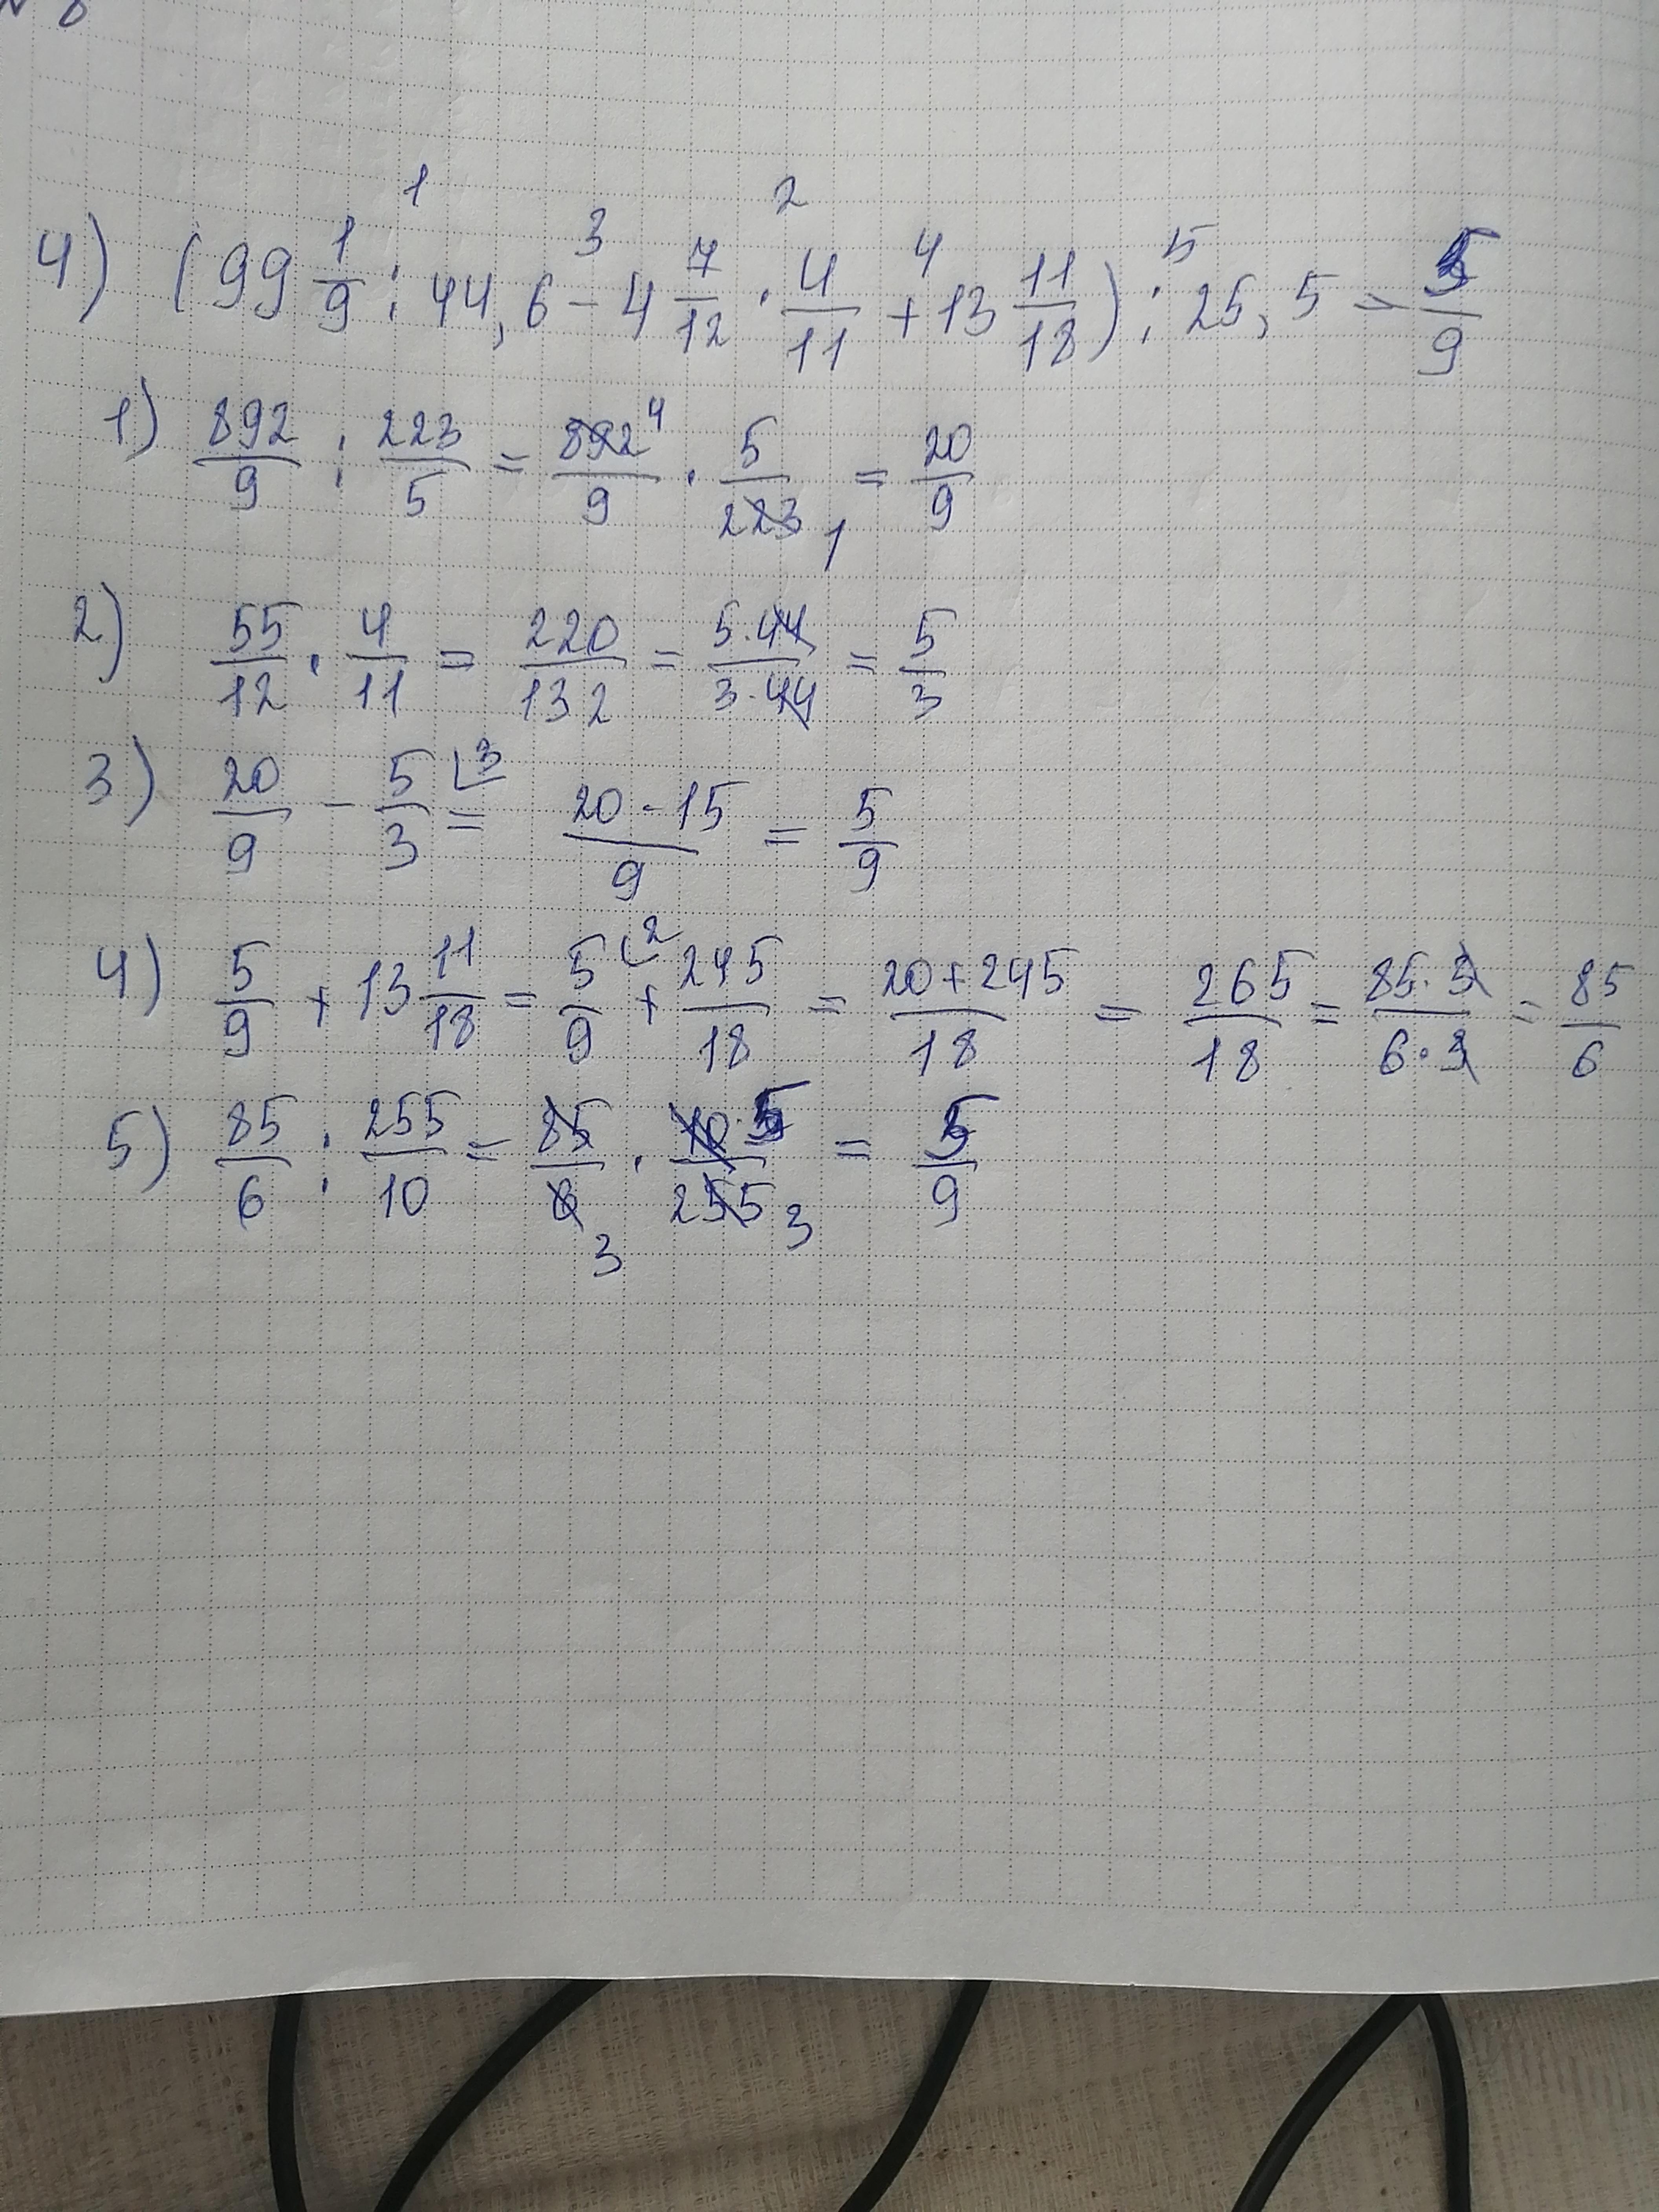 № 8
4) (99 1/9 : 44,6 - 4 7/12 · 4/11 + 13 11/18) : 25,5 = 5/9
1 3 2 4 5
1) 892/9 : 223/5 = 892/9 · 5/223 = 20/9
4 1
2) 55/12 · 4/11 = 220/132 = 5·44/3·44 = 5/3
3) 20/9 - 5/3 = 20-15/9 = 5/9
3
4) 5/9 + 13 11/18 = 5/9 + 245/18 = 20+245/18 = 265/18 = 85·3/6·3 = 85/6
2
5) 85/6 : 255/10 = 85/6 · 10/255 = 5/9
5 3 3